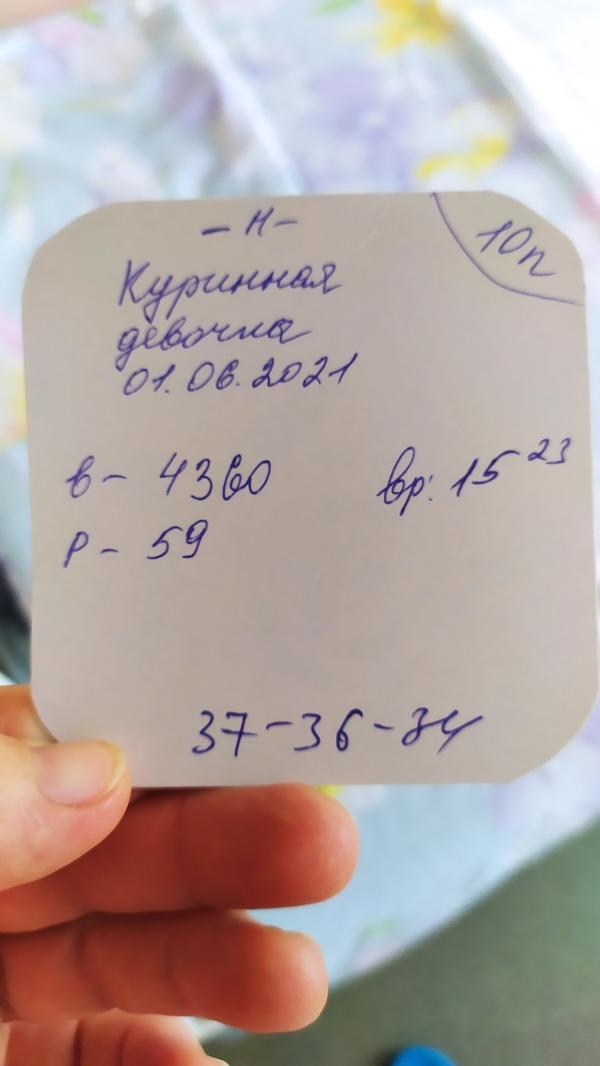 - Н -
10п
Куринная
девочка
01.06.2021
в - 4360
вр: 15 23
р - 59
37-36-34